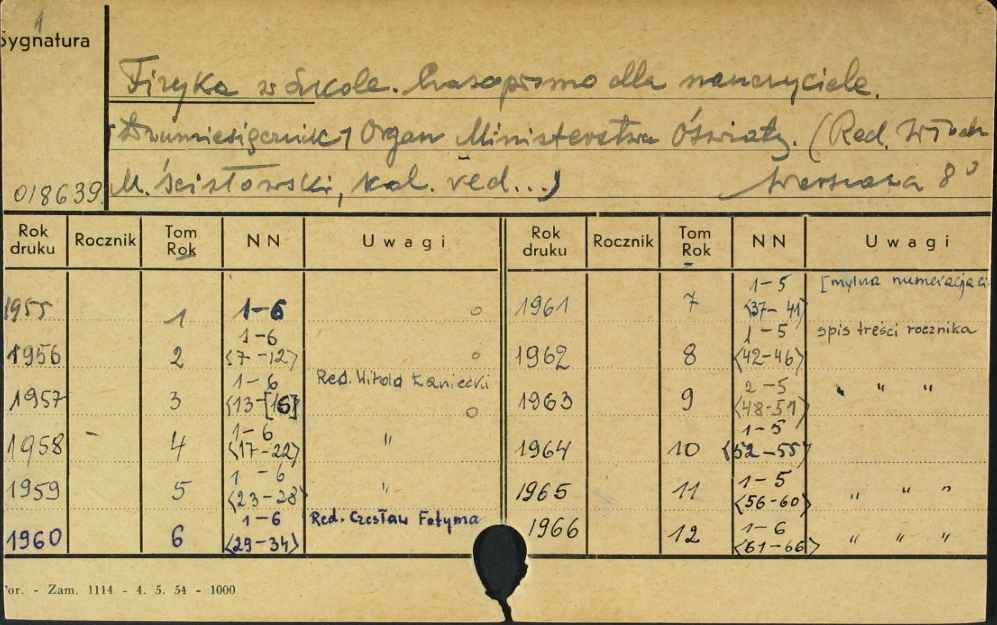 1
Sygnatura
Fizyka w Szkole. Czasopismo dla nauczycieli.
Dwumiesięcznik / Organ Ministerstwa Oświaty. (Red.
M. Ścisłowski, kol. red...) Warszawa 8°
018639.
Rok druku Rocznik Tom Rok NN Uwagi Rok druku Rocznik Tom Rok NN Uwagi
1955 1 1-6 1961 7 1-5 <37-41> [mylna numeracja
1956 2 1-6 <7-12> 1962 8 1-5 <42-46> spis treści rocznika
1957 3 1-6 <13-[16]> Red. Witold 1963 9 2-5 <48-51> " " "
1958 - 4 1-6 <17-22> " 1964 10 1-5 <52-55>
1959 5 1-6 <23-28> " 1965 11 1-5 <56-60> " " "
1960 6 1-6 <29-34> Red. Czesław Fotyma 1966 12 1-6 <61-66> " " "
or. - Zam. 1114 - 4. 5. 54 - 1000